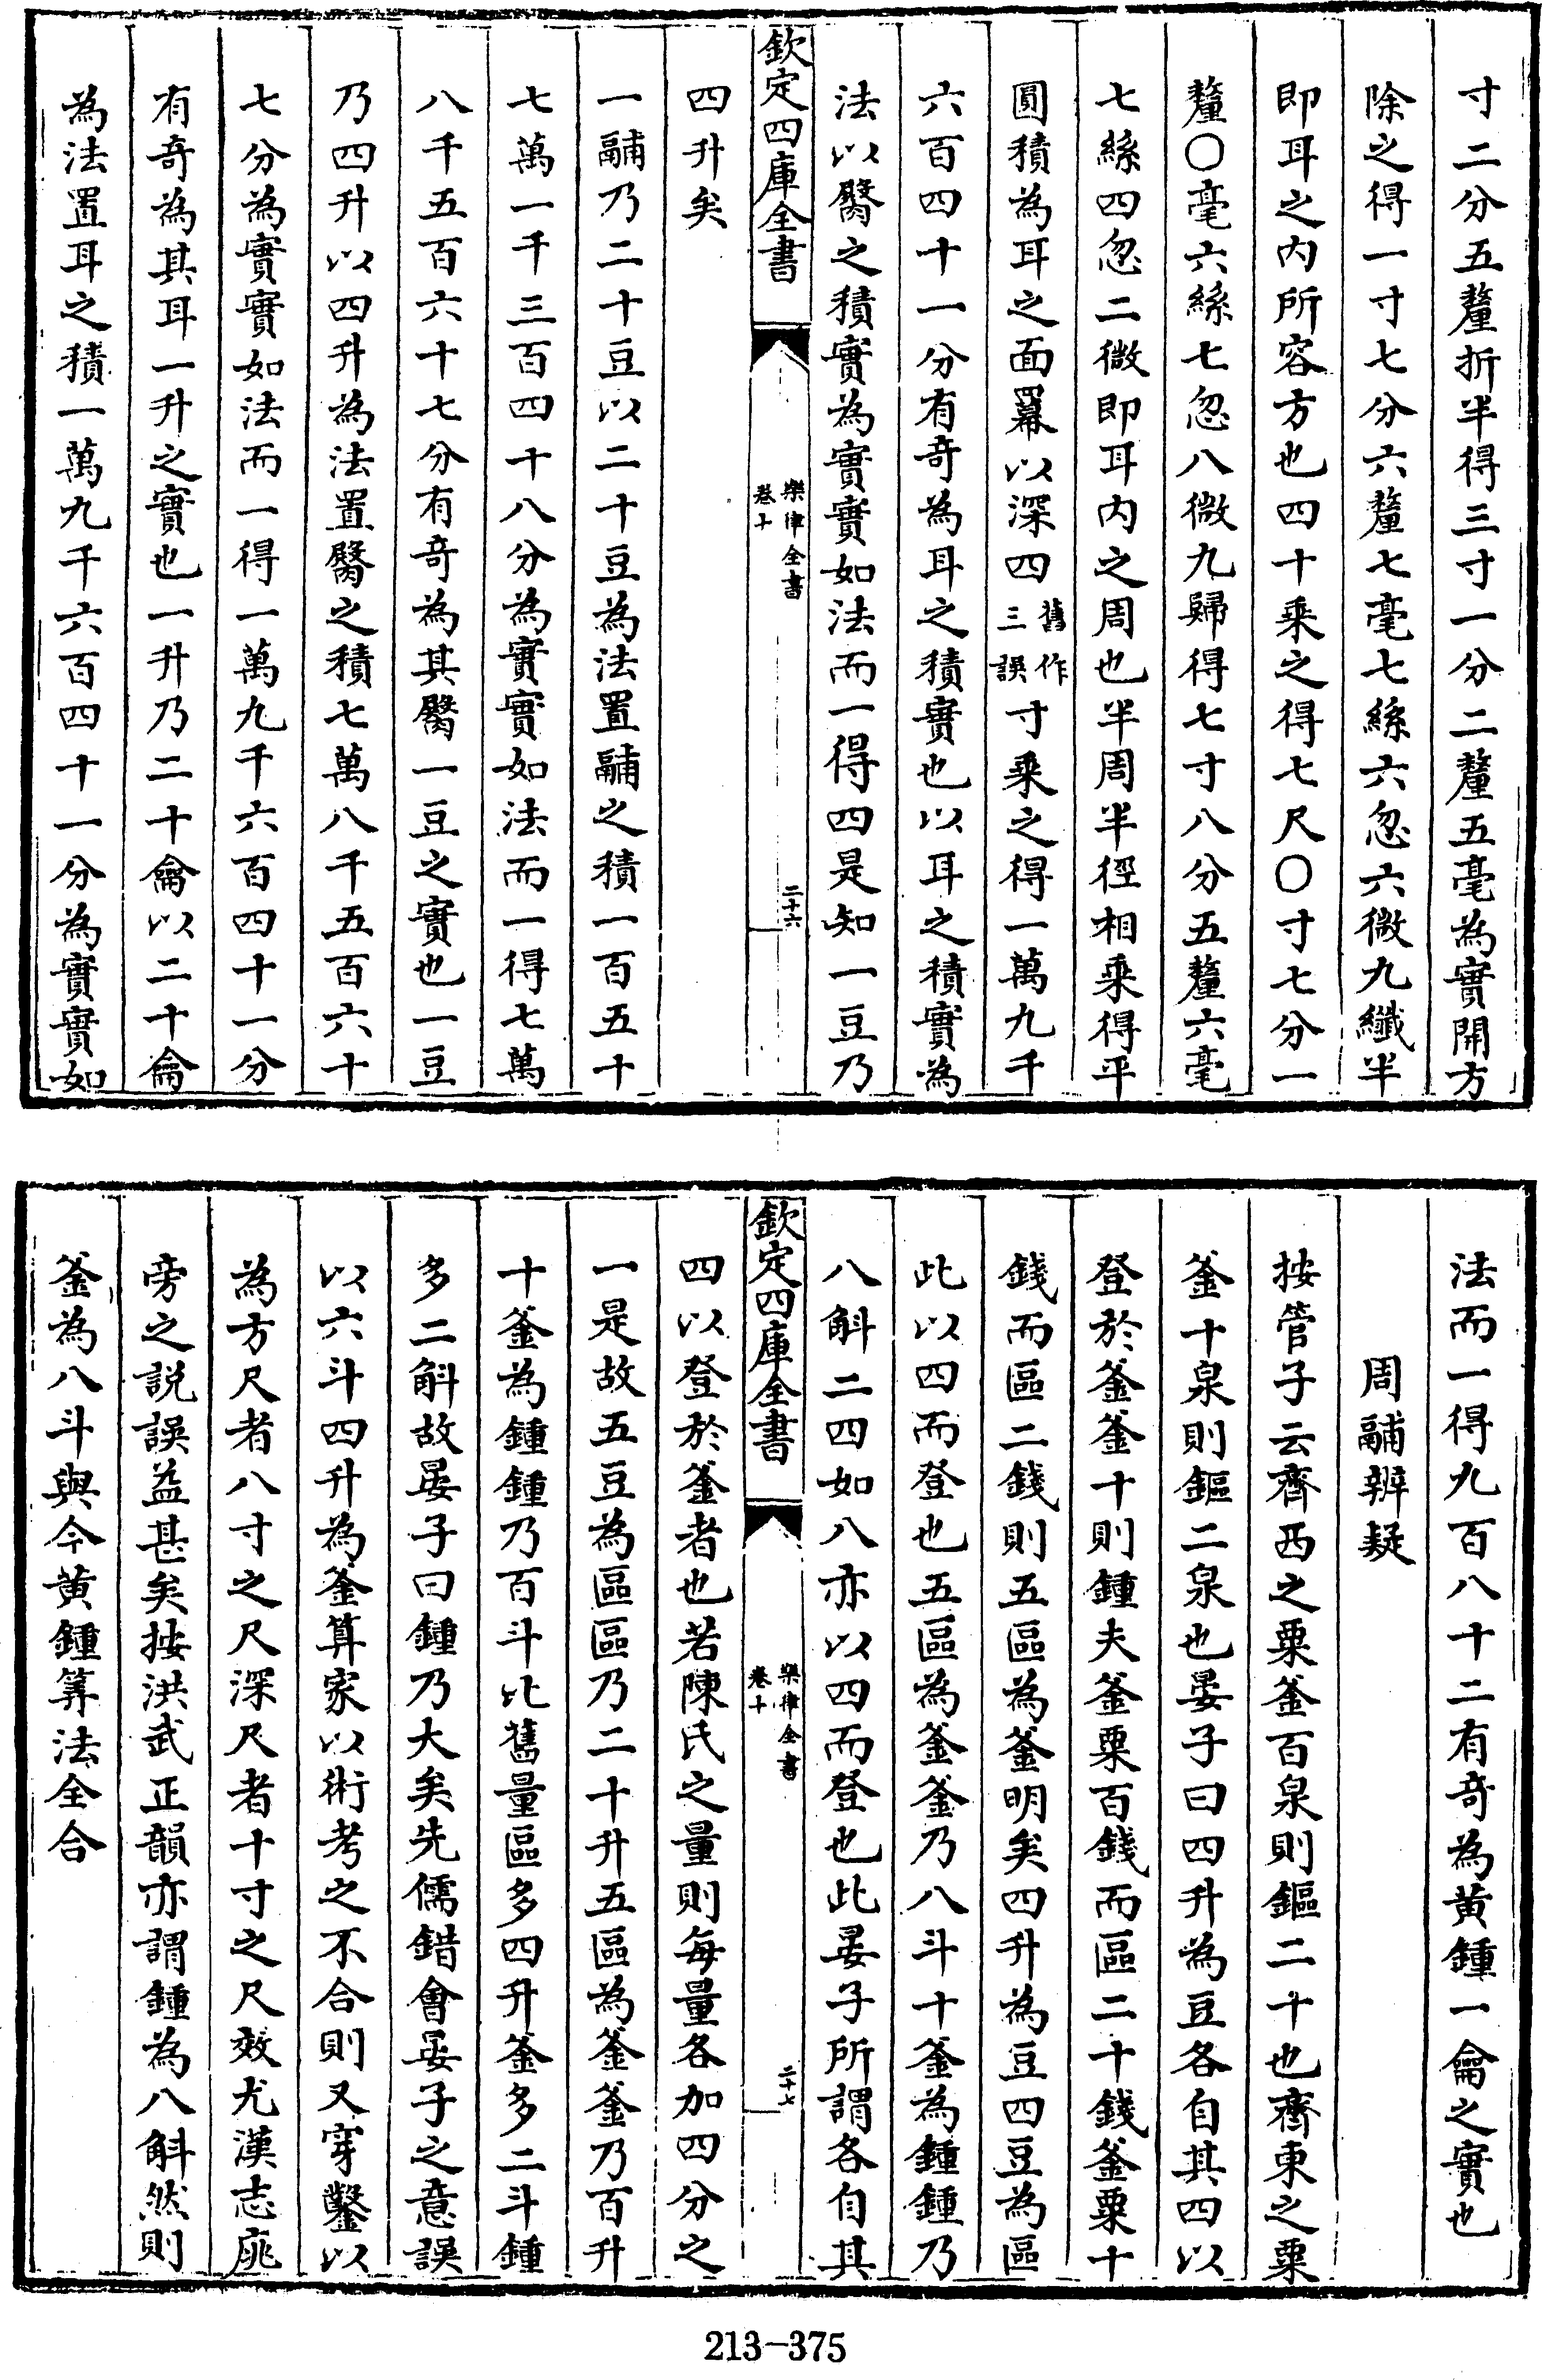 寸二分五釐折半得三寸一分二釐五毫為實開方
除之得一寸七分六釐七毫七絲六忽六微九纖半
即耳之內所容方也四十乘之得七尺〇寸七分一
釐〇毫六絲七忽八微九歸得七寸八分五釐六毫
七絲四忽二微即耳內之周也半周半徑相乘得平
圓積為耳之面冪以深四舊作三誤寸乘之得一萬九千
六百四十一分有奇為耳之積實也以耳之積實為
法以臋之積實為實實如法而一得四是知一豆乃
欽定四庫全書
樂律全書
卷十
二十六
四升矣
一鬴乃二十豆以二十豆為法置鬴之積一百五十
七萬一千三百四十八分為實實如法而一得七萬
八千五百六十七分有奇為其臋一豆之實也一豆
乃四升以四升為法置臋之積七萬八千五百六十
七分為實實如法而一得一萬九千六百四十一分
有奇為其耳一升之實也一升乃二十龠以二十龠
為法置耳之積一萬九千六百四十一分為實實如
法而一得九百八十二有奇為黃鍾一龠之實也
周鬴辨疑
按管子云齊西之粟釜百泉則鏂二十也齊東之粟
釜十泉則鏂二泉也晏子曰四升為豆各自其四以
登於釜釜十則鍾夫釜粟百錢而區二十錢釜粟十
錢而區二錢則五區為釜明矣四升為豆四豆為區
此以四而登也五區為釜釜乃八斗十釜為鍾鍾乃
八斛二四如八亦以四而登也此晏子所謂各自其
欽定四庫全書
樂律全書
卷十
二十七
四以登於釜者也若陳氏之量則每量各加四分之
一是故五豆為區區乃二十升五區為釜釜乃百升
十釜為鍾鍾乃百斗比舊量區多四升釜多二斗鍾
多二斛故晏子曰鍾乃大矣先儒錯會晏子之意誤
以六斗四升為釜算家以術考之不合則又穿鑿以
為方尺者八寸之尺深尺者十寸之尺效尤漢志庣
旁之説誤益甚矣按洪武正韻亦謂鍾為八斛然則
釜為八斗與今黃鍾筭法全合
213-375